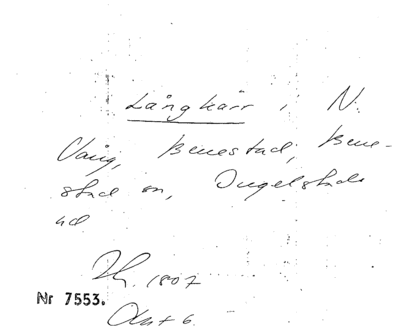 Långkärr i N.
Vång, Benestad, Bene-
stad sn, Ingelstads
hd
Th. 1807
Akt 6.
Nr 7553.